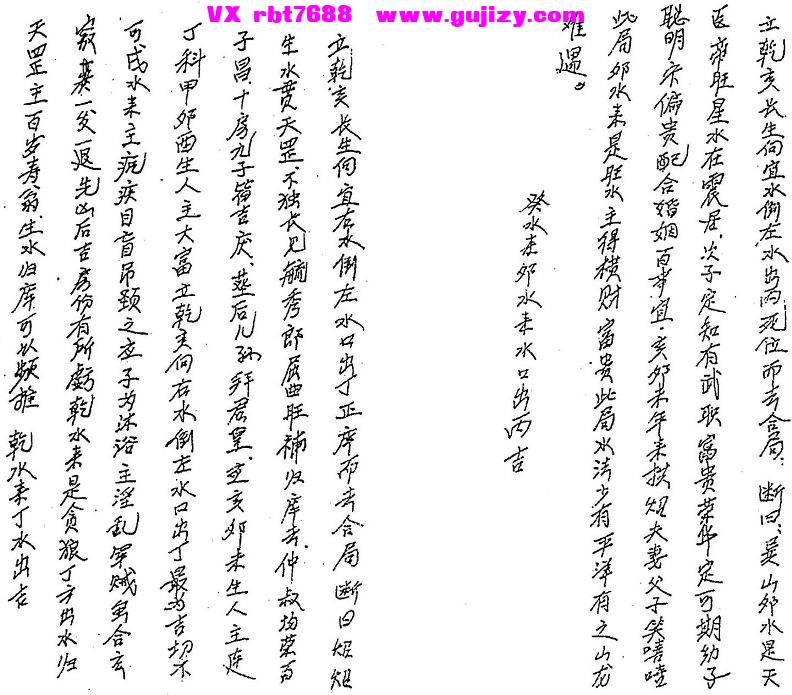 VX rbt7688 www.gujizy.com
立乾亥长生向宜水倒左水出丙死位而去合局。断曰：巽山卯水是天
医帝旺星水在震居，次子定知有武职富贵荣华定可期幼子
聪明宗偏贵配合婚姻百事宜，亥卯未年来扶夫妻父子笑嘻
此局卯水来是旺水主得横财富贵此局水法少有平洋有之山龙
难遇。
癸水来卯水来水口出丙吉
立乾亥长生向宜右水倒左水口出丁正库而去合局断曰
生水贯天罡，不独长儿毓秀郎屈曲旺神归库去，仲叔均荣百
子昌，十房九子皆吉庆，葬后儿孙拜君皇，立亥卯未生人主连
丁科甲卯酉生人主大富立乾亥向右水倒左水口出丁最为吉切不
可戌水来主疾目盲吊颈之应子为沐浴主淫乱军贼出合玄
一发一退先凶后吉房份有所亏乾水来是贪狼丁方出水归
天罡主百岁寿翁，生水归库可以频推 乾水来丁水出吉